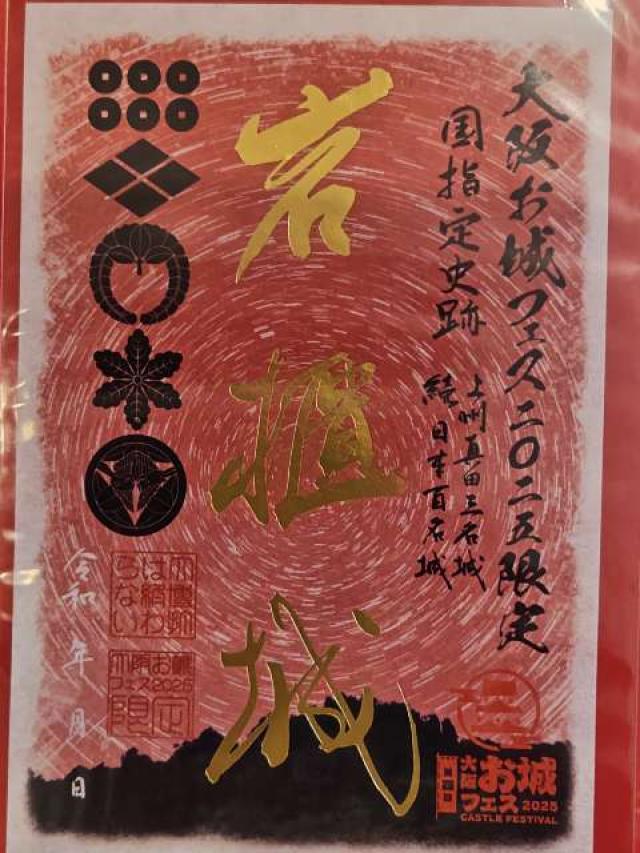 大阪お城フェス二〇二五限定
国指定史跡
上州真田三名城
続日本百名城
岩櫃城
令和 年 月 日
大阪お城
フェス2025
限定
大阪
お城
フェス 2025
CASTLE FESTIVAL